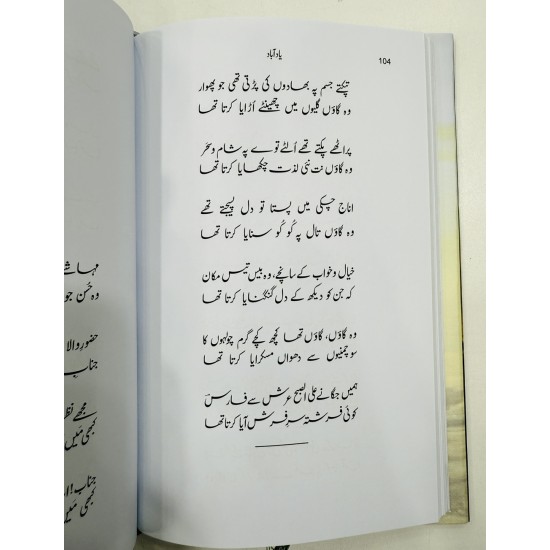 یاد آباد
104
تپتے جسم پہ بھادوں کی پڑتی تھی جو پھوار
وہ گاؤں گلیوں میں چھینٹے اُڑایا کرتا تھا
پراٹھے پکتے تھے اُلٹے توے پہ شام و سحر
وہ گاؤں نت نئی لذت چکھایا کرتا تھا
اناج چکی میں پستا تو دل پسیجتے تھے
وہ گاؤں تال پہ کُو کُو سنایا کرتا تھا
خیال و خواب کے سانچے، وہ بیس تیس مکان
کہ جن کو دیکھ کے دل گنگنایا کرتا تھا
وہ گاؤں، گاؤں تھا کچھ کچے گرم چولہوں کا
سو چمنیوں سے دھواں مسکرایا کرتا تھا
ہمیں جگانے علی الصبح عرش سے فارسؔ
کوئی فرشتہ سرِ فرش آیا کرتا تھا
وہ حُسن جو
حضورِ والا
جناب
مجھے نظر
کبھی میں
جناب! ا
کبھی میں